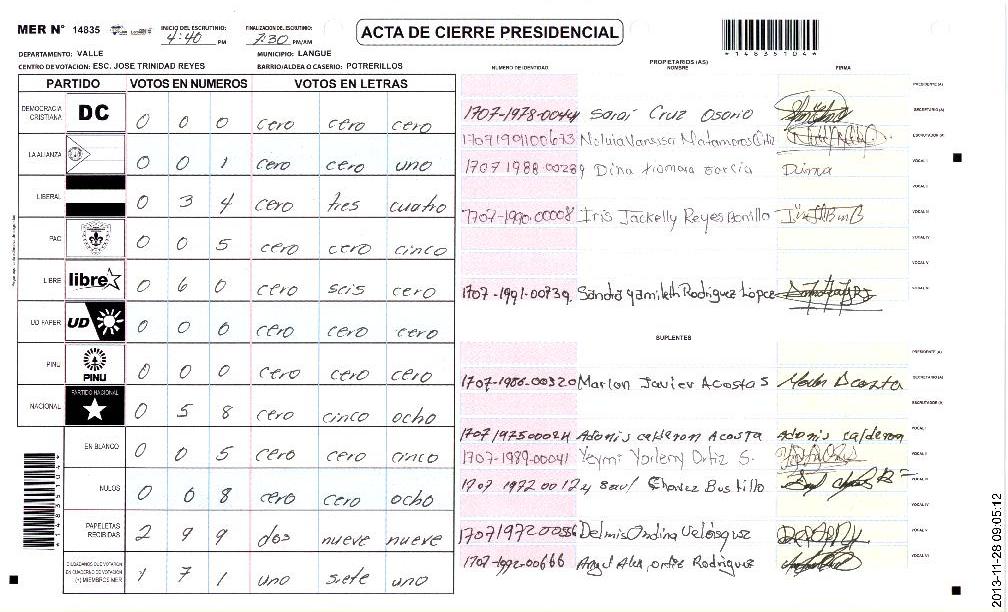 MER N° 14835
INICIO DEL ESCRUTINIO: 4:40 PM
FINALIZACION DE ESCRUTINIO: 7:30 PM/AM
ACTA DE CIERRE PRESIDENCIAL
*1483510 4*
DEPARTAMENTO: VALLE
MUNICIPIO: LANGUE
CENTRO DE VOTACION: ESC. JOSE TRINIDAD REYES
BARRIO/ALDEA O CASERIO: POTRERILLOS
PARTIDO VOTOS EN NUMEROS VOTOS EN LETRAS
DEMOCRACIA CRISTIANA DC 0 0 0 cero cero cero
LA ALIANZA 0 0 1 cero cero uno
LIBERAL 0 3 4 cero tres cuatro
PAC 0 0 5 cero cero cinco
LIBRE libre 0 6 0 cero seis cero
UD FAPER UD 0 0 0 cero cero cero
PINU PINU 0 0 0 cero cero cero
NACIONAL PARTIDO NACIONAL 0 5 8 cero cinco ocho
EN BLANCO 0 0 5 cero cero cinco
NULOS 0 0 8 cero cero ocho
PAPELETAS RECIBIDAS 2 9 9 dos nueve nueve
CIUDADANOS QUE VOTARON EN CUADERNO DE VOTACION (+) MIEMBROS MER 1 7 1 uno siete uno
PROPIETARIOS (AS)
NUMERO DE IDENTIDAD NOMBRE FIRMA
PRESIDENTE (A)
1707-1978-00044 Sarai Cruz Osorio SECRETARIO (A)
Vanessa Matamoros Ortiz ESCRUTADOR (A)
1707 1988-00289 Dina Xiomara Garcia Dina VOCAL I
VOCAL II
1707-1990-00008 Iris Jackelly Reyes Bonilla VOCAL III
VOCAL IV
VOCAL V
1707-1991-00739 Sandra Yamileth Rodriguez López VOCAL VI
SUPLENTES
PRESIDENTE (A)
1707-1986-00320 Marlon Javier Acosta S Marlon Acosta SECRETARIO (A)
ESCRUTADOR (A)
1707197500024 Adonis calderon Acosta Adonis calderon VOCAL I
1707-1989-00041 Yeymi Yorleny Ortiz S. VOCAL II
1707 1972 00124 Saul Chavez Bustillo VOCAL III
VOCAL IV
1707197200056 Delmis Ondina Velásquez VOCAL V
1707-1992-00666 Angel Alex, ortiz Rodriguez VOCAL VI
2013-11-28 09:05:12